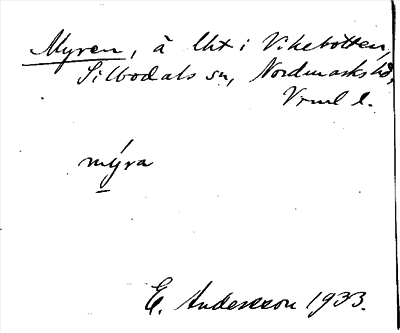 Myren, å lht i Vikebotten,
Silbodals sn, Nordmarks hd,
Vrml l.
mýra
E. Andersson 1933.